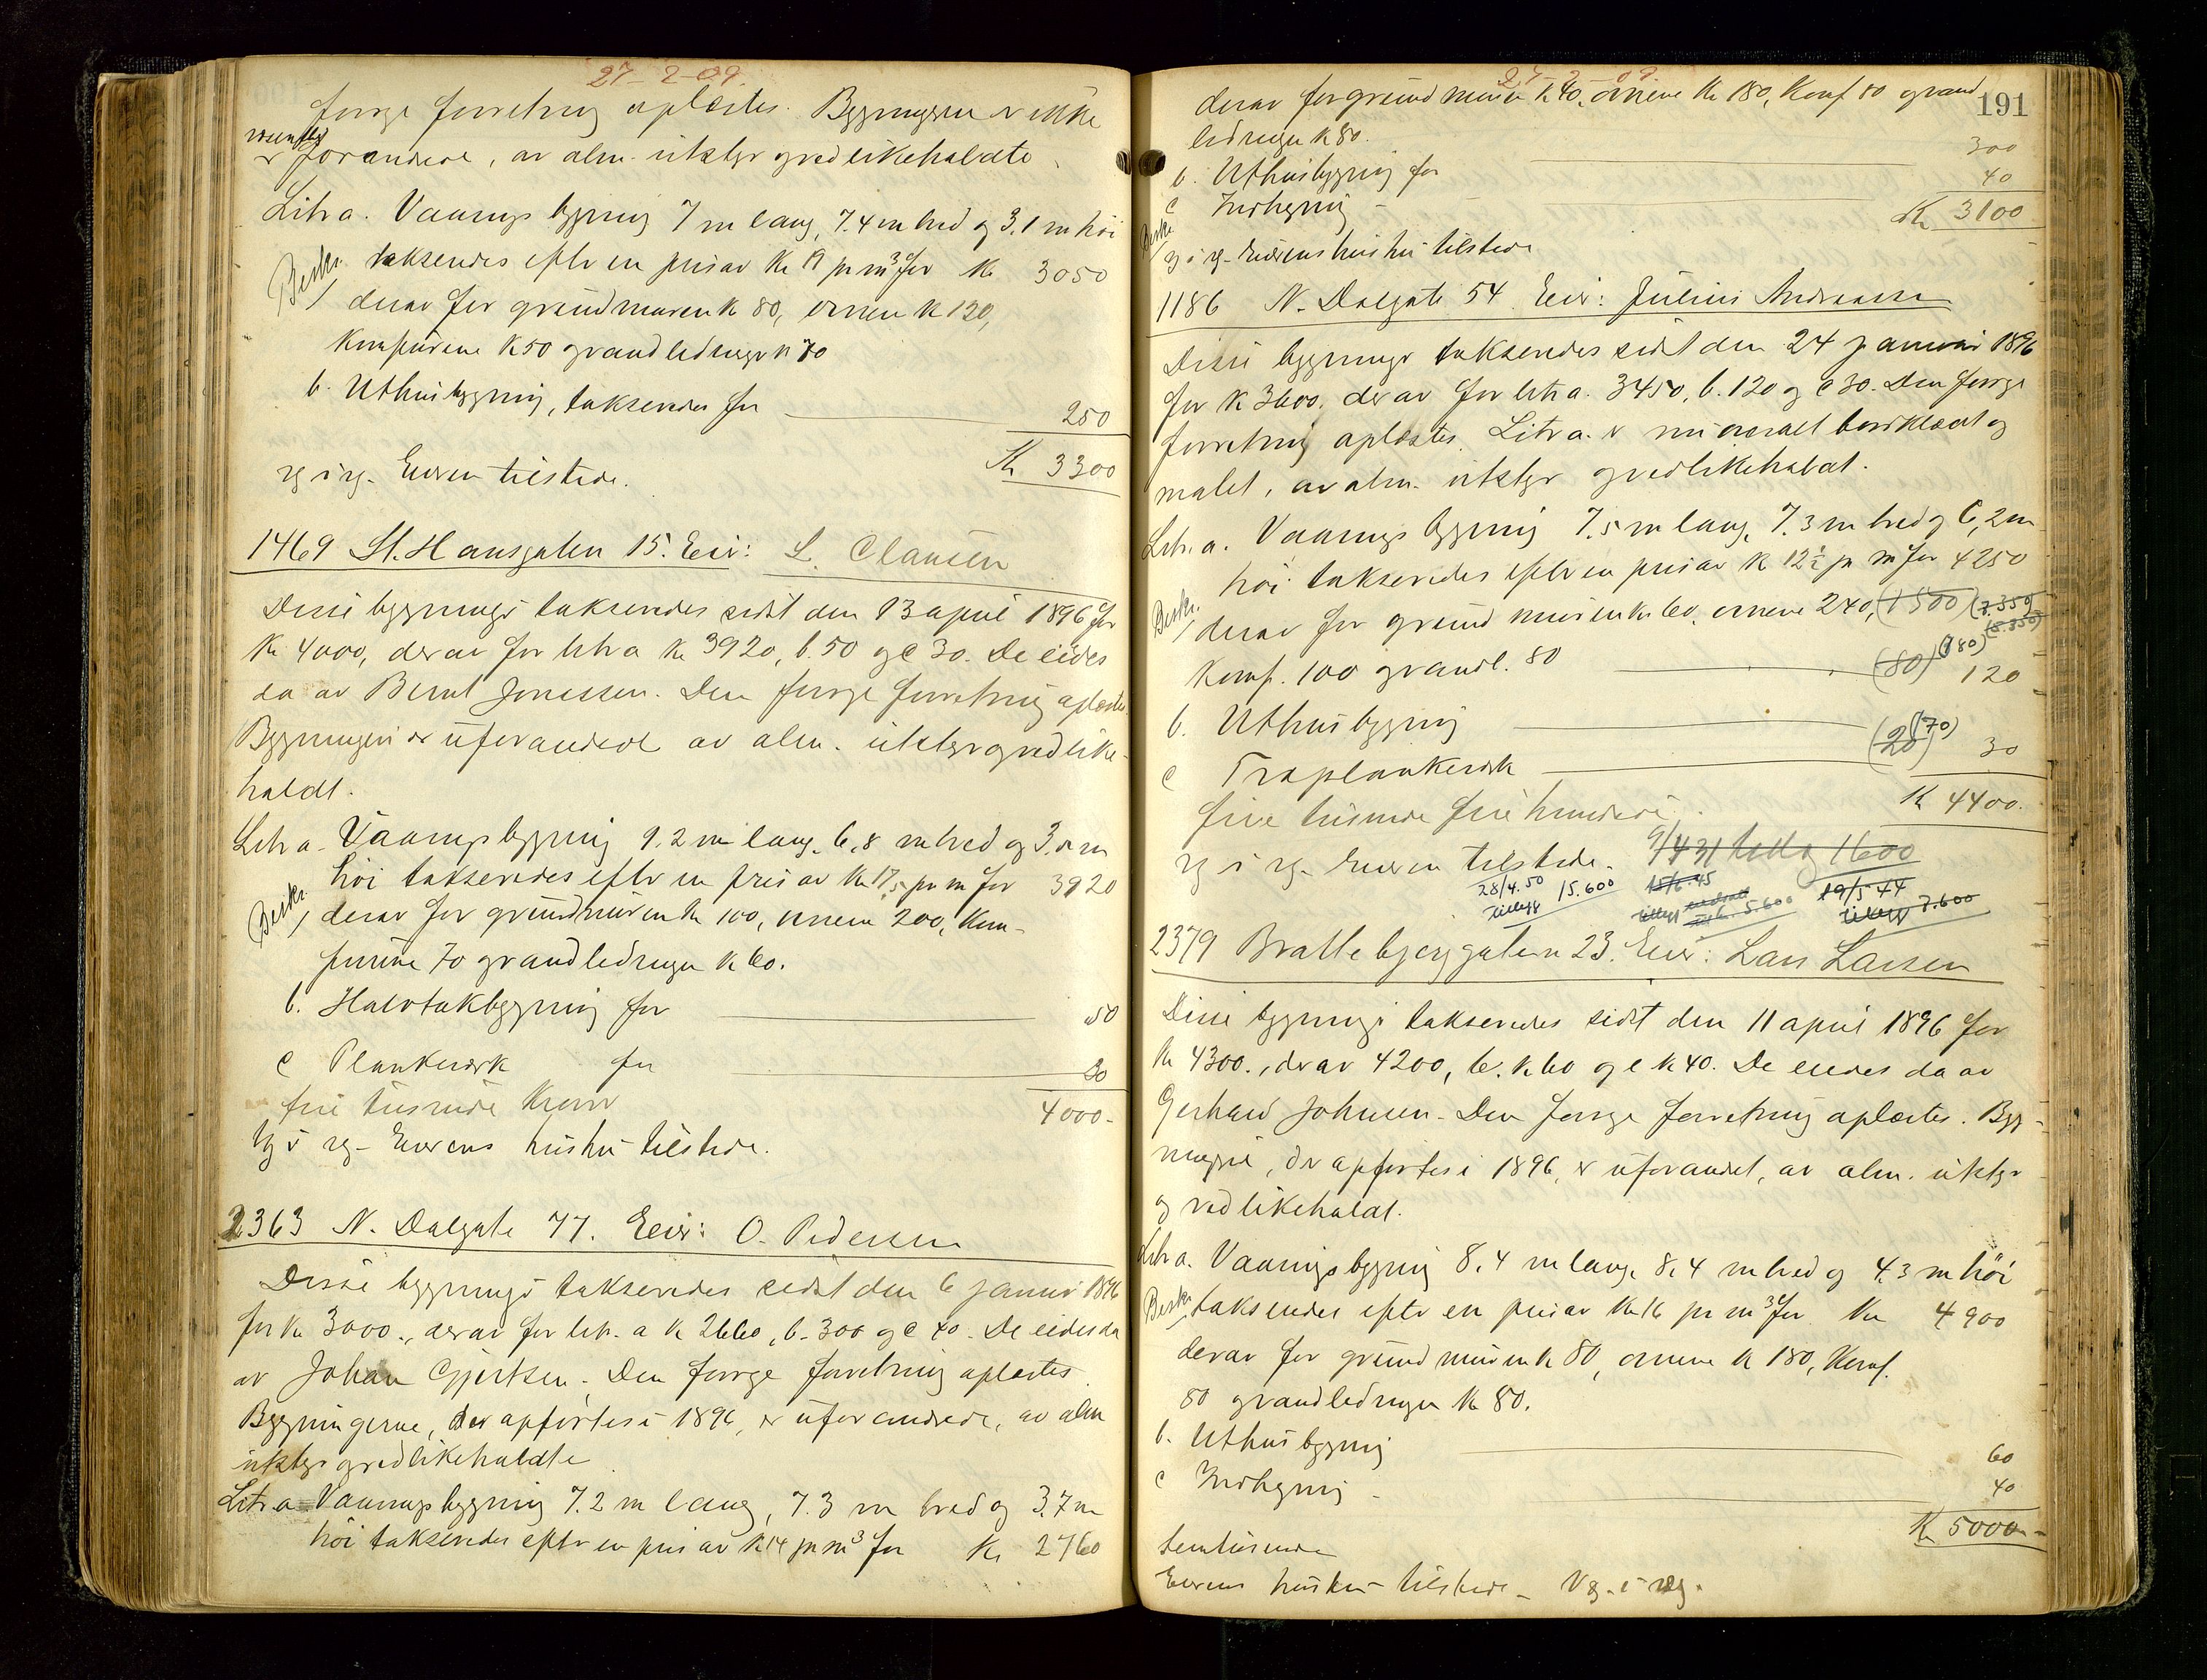 27-2-09.
forrige forretning oplæstes. Bygningerne er ikke
væsentlig
forandrede, av alm. utstyr og vedlikeholdte.
Litr a. Vaaningsbygning 7 m lang, 7.4 m bred og 3.1 m høi
Beskr. taksendes efter en pris av Kr 19 pr m³ for Kr 3050
derav for grundmuren kr 80, ovnen kr 120,
Komfurene K 50 og vandledningen kr 70
b. Uthusbygning, takseredes for 250
Kr 3300
Eieren tilstede.
1469 St. Hansgaten 15. Eier: L. Clausen
Disse bygninger takseredes sidst den 13 april 1896 for
Kr 4000, derav for litr a Kr 3920, b. 50 og c 30. De eiedes
da av Bernt Jonassen. Den forrige forretning oplæstes.
Bygningen er uforandret av alm. utstyr og vedlike-
holdt.
Litr a. Vaaningsbygning 9.2 m lang, 6,8 m bred og 3.8 m
høi takseredes efter en pris av Kr 17,5 pr m for 3920
Beskr. derav for grundmuren kr 100, ovnene 200, Kom-
furene 70 og vandledningen kr 60.
b. Halvtakbygning for 50
c Plankeverk for 30
fire tusinde kroner 4000-
Eierens hustru tilstede.
2363 N. Dalgate 77. Eier: O. Pedersen
Disse bygninger takseredes sidst den 6 januar 1896
for Kr 3000., derav for litr. a Kr 2660, b. 300 og c 40. De eiedes da
av Johan Gjertsen. Den forrige forretning oplæstes.
Bygningerne, der opførtes i 1896, er uforandrede, av alm
utstyr og vedlikeholdte
Litr a Vaaningsbygning 7.2 m lang, 7.3 m bred og 3.7 m
høi takseredes efter en pris av kr 14 pr m³ for Kr 2760
27-2-09.
191
derav for grundmuren kr 40, ovnene kr 180, Komf 80 og vand
ledningen kr 80.
b. Uthusbygning for 300
c Indhegning - 40
Kr 3100
Beskr.
Eierens hustru tilstede
1186 N. Dalgate 54. Eier: Julius Andreassen
Disse bygninger takseredes sidst den 24 januar 1896
for Kr 3600. derav for litr a. 3450, b. 120 og c 30. Den forrige
forretning oplæstes. Litr a. er nu overalt bordklædt og
malet, av alm. utstyr og vedlikeholdt.
Litr. a. Vaaningsbygning 7.5 m lang, 7.3 m bred og 6,2 m
høi takseredes efter en pris av Kr 12½ pr m³ for 4250
Beskr. derav for grundmuren kr 60, ovnene 240, (1500) (7.350)
(8.350)
Komf. 100 og vandl. 80
b. Uthusbygning (80) (180) 120
c Træplankeverk (20) (70) 30
fire tusinde fire hundrede Kr 4400.
Eieren tilstede. 9/4 31 tillæg 1600
28/4.50 15.600 15/6.45 19/5 44
tillegg tillegg 5.600 tillegg 7.600
2379 Brattebjerggaten 23. Eier: Lars Larsen
Disse bygninger takseredes sidst den 11 april 1896 for
Kr 4300., derav 4200, b. kr 60 og c kr 40. De eiedes da av
Gerhard Johnsen. Den forrige forretning oplæstes. Byg-
ningene, der opførtes i 1896, er uforandret, av alm. utstyr
og vedlikeholdt.
Litr a. Vaaningsbygning 8.4 m lang, 8.4 m bred og 4.3 m høi
Beskr. taksendes efter en pris av Kr 16 pr m³ for Kr 4900
derav for grundmuren kr 80, ovnene kr 180, Komf.
80 og vandledningen kr 80.
b. Uthusbygning 60
c Indhegning - 40
Kr 5000-
femtusinde
Eierens hustru tilstede -